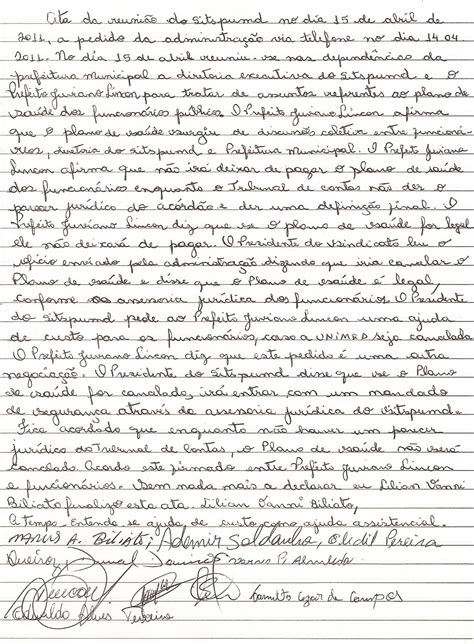 Ata da reunião do Sitspumd no dia 15 de abril de
2011, a pedido da administração via telefone no dia 14.04
2011. No dia 15 de abril reuniu-se nas dependências da
prefeitura municipal a diretoria executiva do Sitspumd e o
Prefeito Juviano Lincon para tratar de assuntos referentes ao plano de
saúde dos funcionários públicos. O Prefeito Juviano Lincon afirma
que o plano de saúde surgiu de discussões coletiva entre funcioná
rios, diretoria do sitspumd e Prefeitura Municipal. O Prefeito Juviano
Lincon afirma que não irá deixar de pagar o plano de saúde
dos funcionários enquanto o Tribunal de contas não der o
parecer jurídico do acórdão e der uma definição final. O
Prefeito Juviano Lincon diz que se o plano de saúde for legal
ele não deixará de pagar. O Presidente do sindicato leu o
ofício enviado pela administração dizendo que iria cancelar o
Plano de saúde e disse que o Plano de saúde é legal,
conforme assessoria jurídica dos funcionários. O Presidente
do Sitspumd pede ao Prefeito Juviano Lincon uma ajuda
de custo para os funcionários, caso a UNIMED seja cancelada
O Prefeito Juviano Lincon diz que este pedido é uma outra
negociação. O Presidente do Sitspumd disse que se o Plano
de saúde for cancelado, irá entrar com um mandado
de segurança através da assessoria jurídica do Sitspumd.
Fica acordado que enquanto não houver um parecer
jurídico do Tribunal de Contas, o Plano de saúde não será
cancelado. Acordo este firmado entre Prefeito Juviano Lincon
e funcionários. Sem nada mais a declarar eu Lilian Vanni
Biliato finalizo esta ata. Lilian Vanni Biliato,
Em tempo entende-se ajuda de custo como ajuda assistencial.
Marcus A. Biliato; Ademir Saldanha, Elidil Pereira
Queiroz, P. Almeida
Hamilto Cezar de Campos
Alves Teixeira